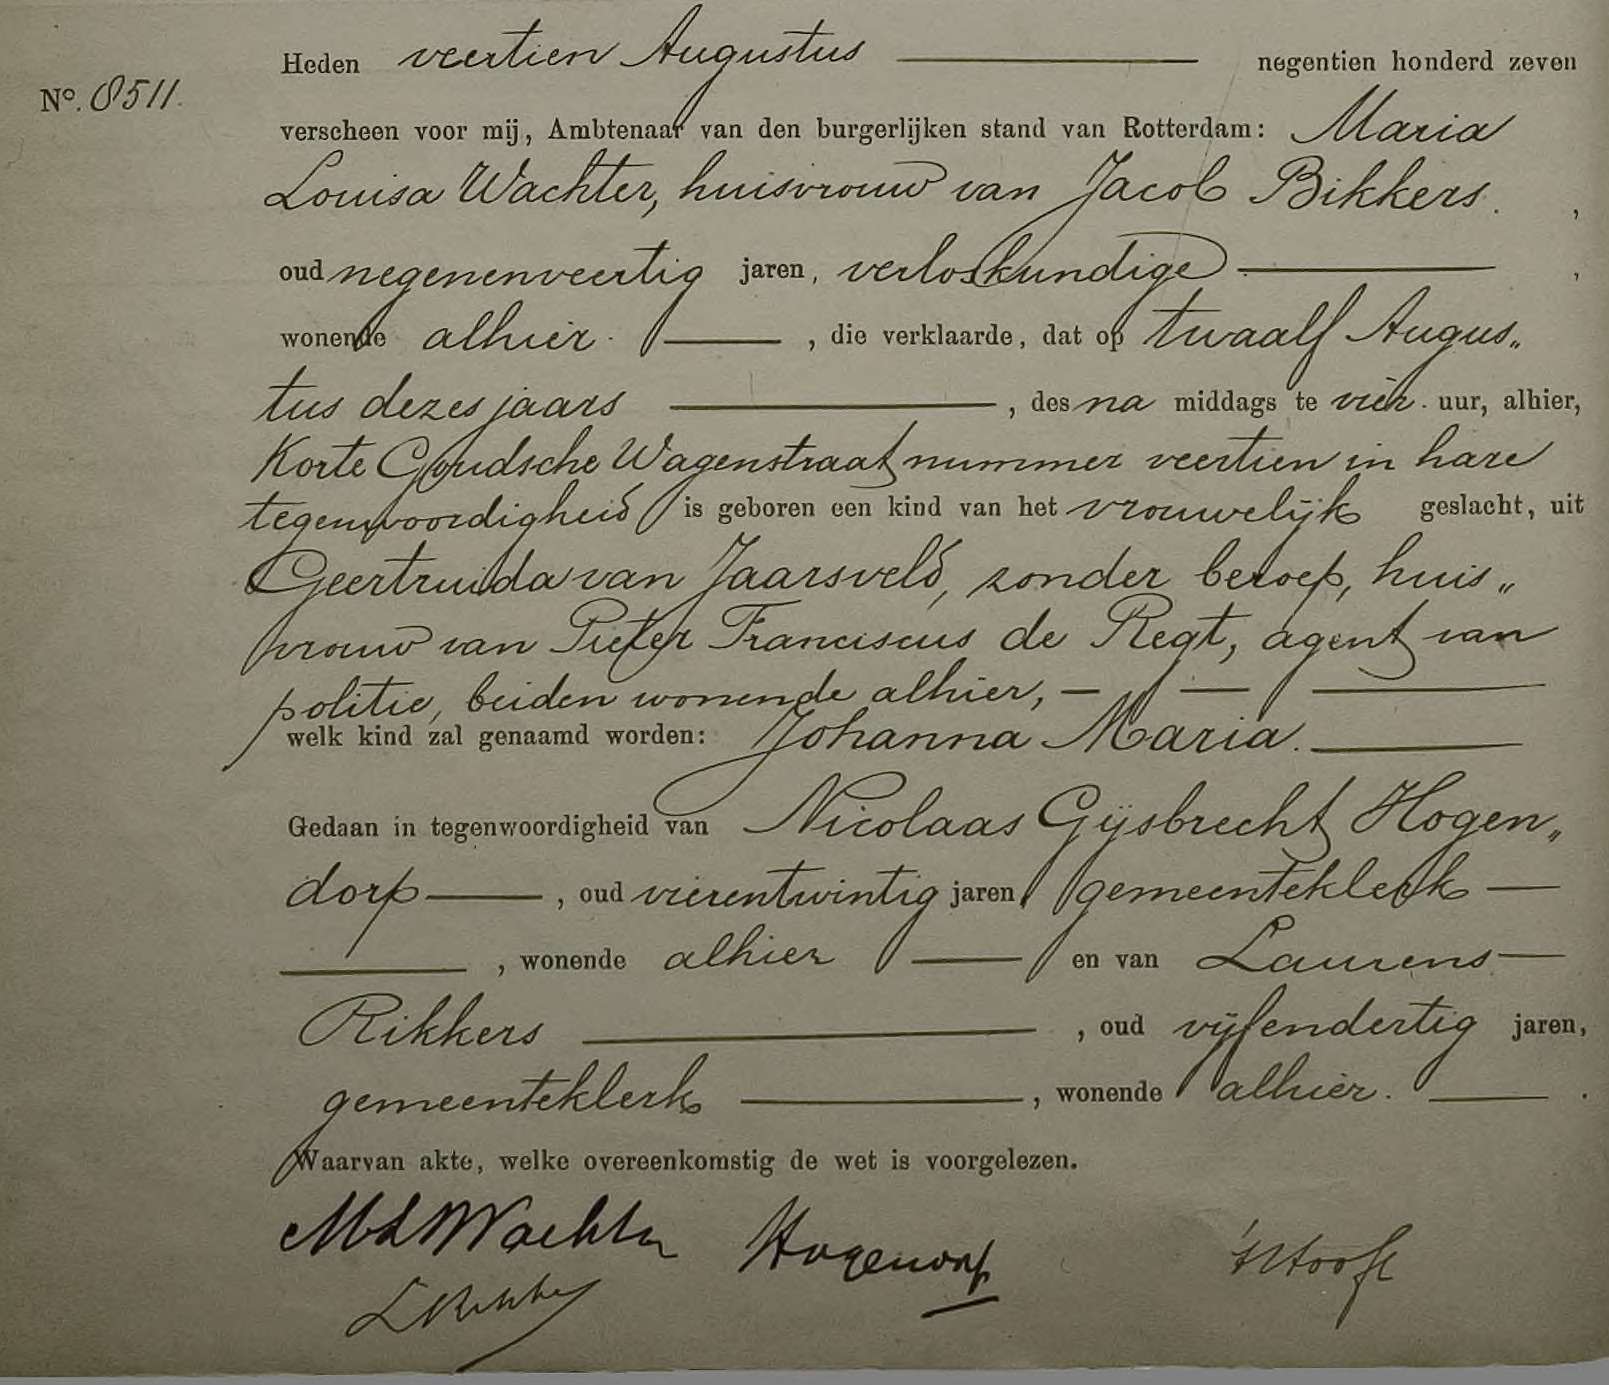 Heden veertien Augustus negentien honderd zeven
No. 8511.
verscheen voor mij, Ambtenaar van den burgerlijken stand van Rotterdam: Maria
Louisa Wachter, huisvrouw van Jacob Bikkers. ,
oud negenenveertig jaren, verloskundige ,
wonende alhier. , die verklaarde, dat op twaalf Augus„
tus dezes jaars , des na middags te vier. uur, alhier,
Korte Goudsche Wagenstraat nummer veertien in hare
tegenwoordigheid is geboren een kind van het vrouwelijk geslacht, uit
Geertruida van Jaarsveld, zonder beroep, huis„
vrouw van Pieter Franciscus de Regt, agent van
politie, beiden wonende alhier, — — —
welk kind zal genaamd worden: Johanna Maria.
Gedaan in tegenwoordigheid van Nicolaas Gijsbrecht Hogen„
dorp , oud vierentwintig jaren, gemeenteklerk
, wonende alhier en van Laurens
Rikkers , oud vijfendertig jaren,
gemeenteklerk , wonende alhier. .
Waarvan akte, welke overeenkomstig de wet is voorgelezen.
MLWachter Hogendorp 't Hooft
LRikkers